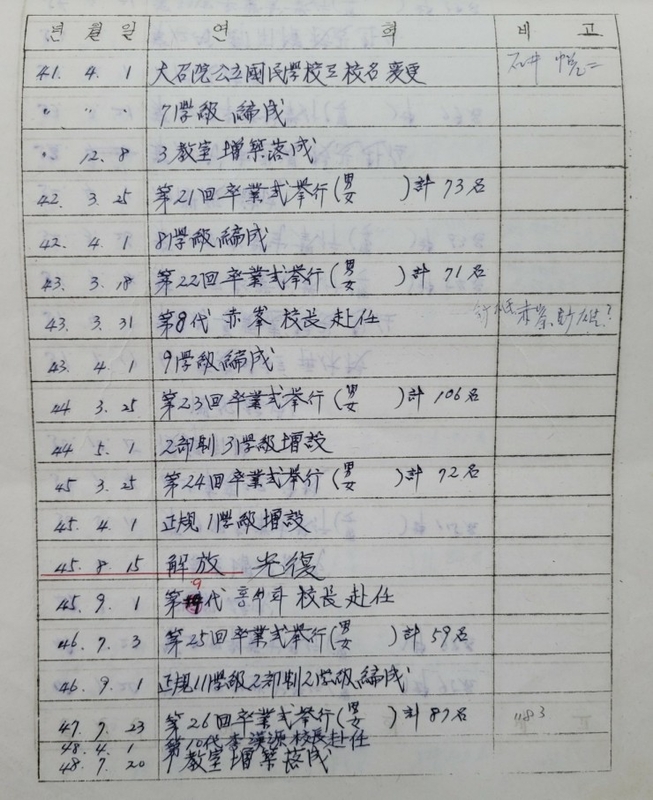 년 월 일 연 혁 비 고
41. 4. 1 大召院公立國民學校로校名變更 石井
〃 〃 7學級 編成
12. 8 3教室 增築落成
42. 3. 25 第21回卒業式擧行(男女 )計 73名
42. 4. 1 8學級編成
43. 3. 18 第22回卒業式擧行(男女 )計 71名
43. 3. 31 第8代 赤峯 校長赴任 赤峯
43. 4. 1 9學級編成
44 3. 25 第23回卒業式擧行(男女 )計 106名
44 5. 1 2部制 3學級增設
45 3. 25 第24回卒業式擧行(男女 )計 72名
45. 4. 1 正規 1學級增設
45. 8. 15 解放 光復
45. 9. 1 第9代 校長赴任
46. 7. 3 第25回卒業式擧行(男女 )計 59名
46. 9. 1 正規11學級2部制2學級編成
47. 7. 23 第26回卒業式擧行(男女 )計 87名 1183
48. 4. 1 第10代 李漢源 校長赴任
48. 7. 20 1教室增築落成